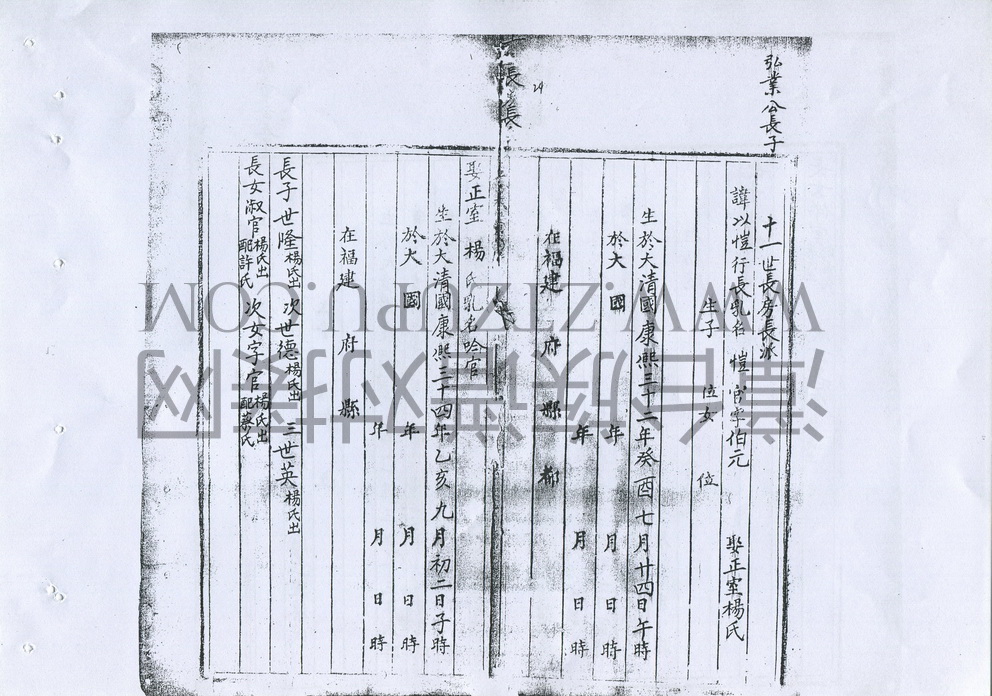 弘業公長子
十一世長房長派
諱以愷行長乳名愷官字伯元 娶正室楊氏
生子 位女 位
生於大清國康熙三十二年癸酉七月廿四日午時
於大國 年 月 日 時
年 月 日 時
在福建 府 縣 都
長
長
24
娶正室楊氏乳名哈官
生於大清國康熙三十四年乙亥九月初二日子時
於大國 年 月 日 時
年 月 日 時
在福建 府 縣
長子世隆楊氏出 次世德楊氏出 三世英楊氏出
長女淑官楊氏出配許氏 次女字官楊氏出配蔡氏
WWW.ZIZUPU.COM